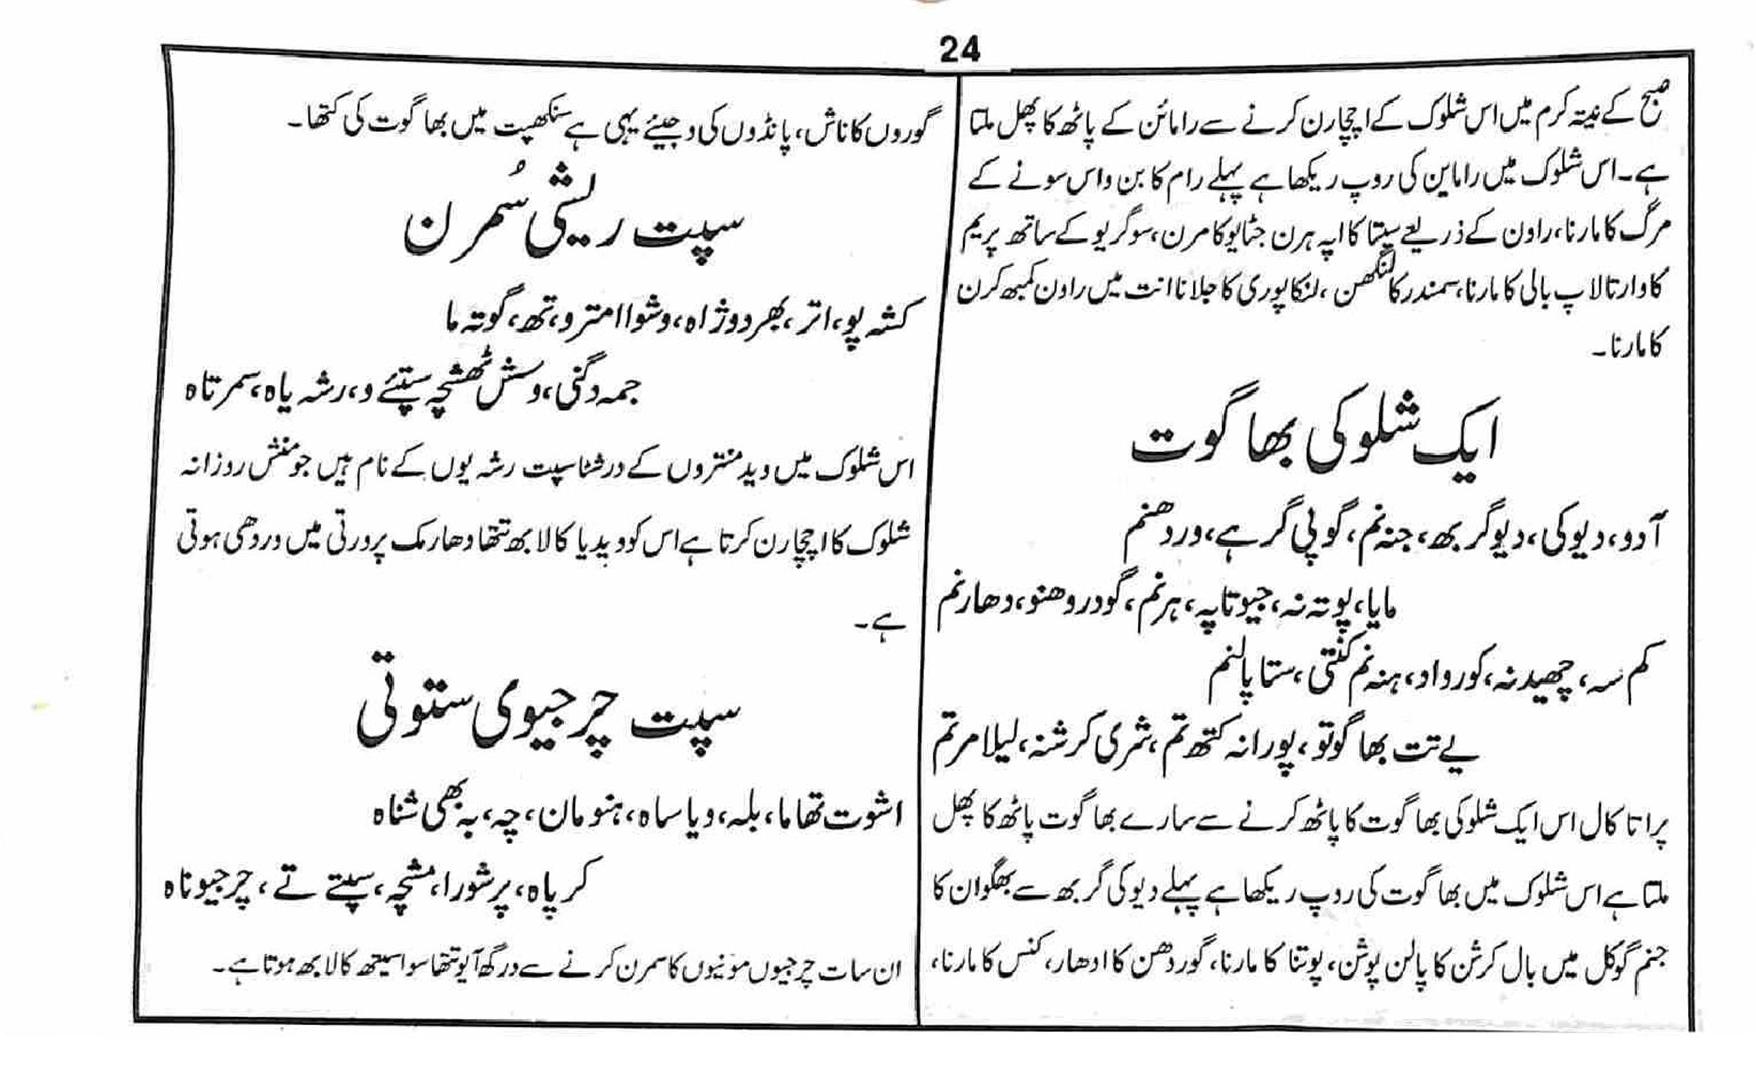 24
صبح کے نیتہ کرم میں اس شلوک کے اچارن کرنے سے رامائن کے پاٹھ کا پھل ملتا
ہے۔ اس شلوک میں راماین کی روپ ریکھا ہے پہلے رام کا بن واس سونے کے
مرگ کا مارنا، راون کے ذریعے سیتا کا اپہ ہرن جٹایو کا مرن، سوگریو کے ساتھ پریم
کا وارتالاپ بالی کا مارنا، سمندر کا لنگھن، لنکا پوری کا جلانا انت میں راون کمبھ کرن
کا مارنا۔
ایک شلوکی بھاگوت
آدو، دیوکی، دیوگربھ، جنہ نم، گوپی گرہے، وردھنم
مایا، پوتہ نہ، جیوتاپہ، ہرنم، گودروھنو، دھارنم
کم سہ، چھیدنہ، کوروادہ، ہنہ نم کنتی، ستاپالنم
یے تت بھاگوتو، پورانہ کتھ تم، شری کرشنہ، لیلامرتم
پراتا کال اس ایک شلوکی بھاگوت کا پاٹھ کرنے سے سارے بھاگوت پاٹھ کا پھل
ملتا ہے اس شلوک میں بھاگوت کی روپ ریکھا ہے پہلے دیوکی گربھ سے بھگوان کا
جنم گوکل میں بال کرشن کا پالن پوشن، پوتنا کا مارنا، گوردھن کا ادھار، کنس کا مارنا،
گوروں کا ناش، پانڈوں کی وجیئے یہی ہے سنکھپت میں بھاگوت کی کتھا۔
سپت ریشی سُمرن
کشہ پو، اتر، بھردوژاہ، وشوا امترو، تھ، گوتہ ما
جمہ دگنی، وسش ٹھشچہ ستپئے و، رشہ یاہ، سمرتاہ
اس شلوک میں وید منتروں کے درشٹا سپت رشہ یوں کے نام ہیں جو منش روزانہ
شلوک کا اچارن کرتا ہے اس کو ویدیا کا لابھ تتھا دھارمک پرورتی میں وردھی ہوتی
ہے۔
سپت چرجیوی ستوتی
اشوت تھاما، بلہ، ویاساہ، ہنومان، چہ، بہ بھی شناہ
کرپاہ، پرشورا، مشچہ، سپتے تے، چرجیوناہ
ان سات چرجیوں مونیوں کا سمرن کرنے سے درگھ آیو تتھا سواستھ کا لابھ ہوتا ہے۔